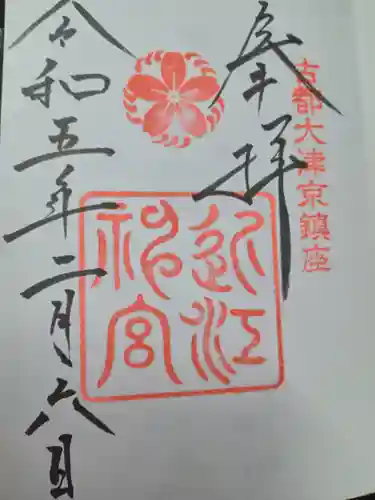 古都大津京鎮座
奉拝
近江神宮
令和五年二月六日